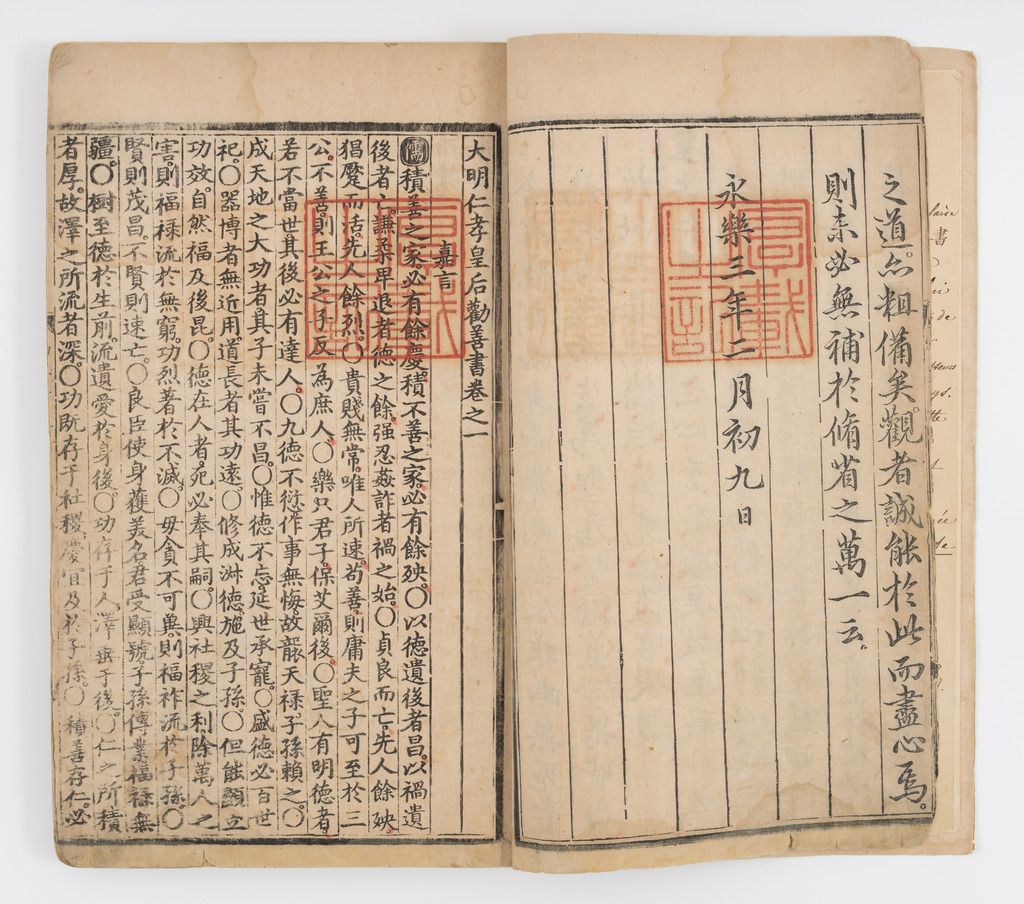 之道亦粗備矣觀者誠能於此而盡心焉
則未必無補於脩省之萬一云
永樂三年二月初九日
大明仁孝皇后勸善書卷之一
嘉言
儒積善之家必有餘慶積不善之家必有餘殃〇以德遺後者昌以禍遺
後者亡謙柔卑退者德之餘强忍姦詐者禍之始〇貞良而亡先人餘殃
猖蹷而活先人餘烈〇貴賤無常唯人所速苟善則庸夫之子可至於三
公不善則王公之子反為庶人〇樂只君子保艾爾後〇聖人有明德者
若不當世其後必有達人〇九德不愆作事無悔故襲天禄子孫賴之〇
成天地之大功者其子未嘗不昌〇惟德不忘延世承寵〇盛德必百世
祀〇器博者無近用道長者其功遠〇修成淋德施及子孫〇但能顯立
功效自然福及後昆〇德在人者死必奉其嗣〇興社稷之利除萬人之
害則福禄流於無窮功烈著於不滅〇毋貪不可異則福祚流於子孫〇
賢則茂昌不賢則速亡〇良臣使身獲美名君受顯號子孫傳業福禄無
疆〇樹至德於生前流遺愛於身後〇功存于人澤垂于後〇仁之所積
者厚故澤之所流者深〇功既存于社稷慶宜及於子孫〇積善存仁必